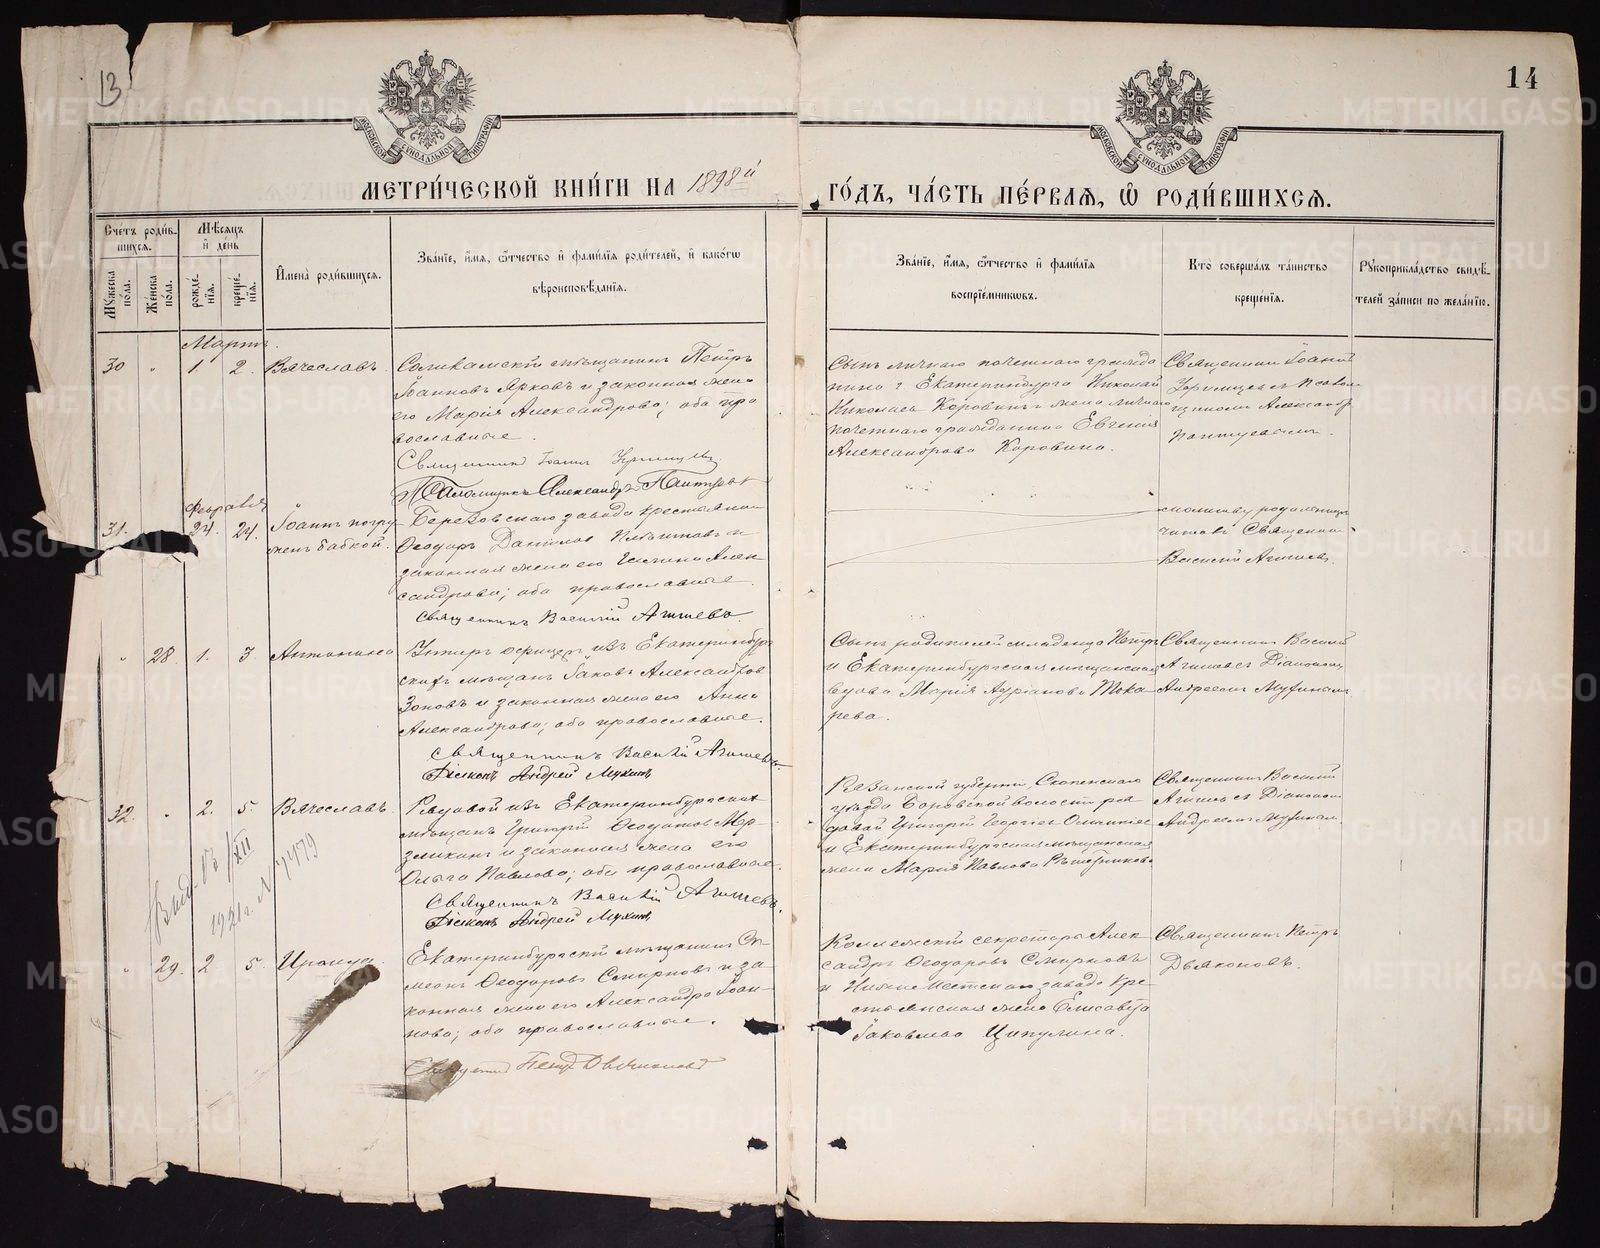 13
14
МЕТРИ́ЧЕСКОЙ КНИ́ГИ НА 1898й
ГО́ДЪ, ЧА́СТЬ ПЕ́РВАѦ, Ѡ҆ РОДИ́ВШИХСѦ.
Сче́тъ роди́в-
шихсѧ.
Мꙋжеска по́ла.
Же́нска по́ла.
Мѣ́сѧцъ и҆ де́нь
рожде́-нїѧ.
креще́-нїѧ.
И҆мена̀ роди́вшихсѧ.
Зва́нїе, и҆́мѧ, ѻ҆́тчество и҆ фами́лїѧ роди́телей, и҆ како́гѡ
вѣроисповѣ́данїѧ.
Зва́нїе, и҆́мѧ, ѻ҆́тчество и҆ фами́лїѧ
воспрїе́мникѡвъ.
Кто̀ соверша́лъ та́инство
креще́нїѧ.
Рꙋкоприкла́дство свидѣ́-
телей за́писи по жела́нїю.
Мартъ.
30 " 1 2. Вячеславъ.
Соликамскій мѣщанинъ Петръ
Іоанновъ Ярковъ и законная жена
его Марія Александрова; оба пра
вославные.
Священникъ Іоаннъ
Псаломщикъ Александръ
Сынъ личнаго почетнаго гражда
нина г. Екатеринбурга Николай
Николаевъ Коровинъ и жена личнаго
почетнаго гражданина Евгенія
Александрова Коровина.
Священникъ Іоаннъ
съ псалом
щикомъ Александр
Февраля
31. 24. 24. Іоаннъ погру
женъ бабкой.
Березовскаго завода крестьянинъ
Ѳеодоръ Даниловъ и
законная жена его Алек
сандрова; оба православные.
Священникъ Василій Агишевъ
молитву родильницѣ
читалъ Священникъ
Василій Агишевъ.
" 28. 1. 3. Антонина
Унтеръ офицеръ изъ Екатеринбург
скихъ мѣщанъ Іаковъ Александров
Зоновъ и законная жена его Анна
Александрова; оба православные.
Священникъ Василій Агишевъ.
Діаконъ Андрей Мухинъ
Сынъ родителей младенца Петръ
и Екатеринбургская мѣщанская
вдова Марія Адріанова Тока
рева.
Священникъ Василій
Агишевъ съ Діакономъ
Андреемъ Мухинымъ
32. " 2. 5. Вячеславъ.
Рядовой изъ Екатеринбургскихъ
мѣщанъ Григорій Ѳедотовъ Мер-
зликинъ и законная жена его
Ольга Павлова; оба православные.
Священникъ Василій Агишевъ.
Діаконъ Андрей Мухинъ
Рязанской губерніи, Скопинскаго
уѣзда Боровской волости ря
довой Григорій Георгіев
и Екатеринбургская мѣщанская
жена Марія Павлова Рѣшетникова
Священникъ Василій
Агишевъ съ Діакономъ
Андреемъ Мухинымъ.
XII
1921 г. № 7479
" 29. 2 5. Ираида.
Екатеринбургскій мѣщанинъ Си-
меонъ Ѳеодоровъ Смирновъ и за
конная жена его Александра Іоан-
нова; оба православные.
Священникъ Петръ Дьяконовъ
Коллежскій секретарь Алек
сандръ Ѳеодоровъ Смирновъ
и Нижне Исетскаго завода кре
стьянская жена Елисавета
Іаковлева Ципулина.
Священникъ Петръ
Дьяконовъ.